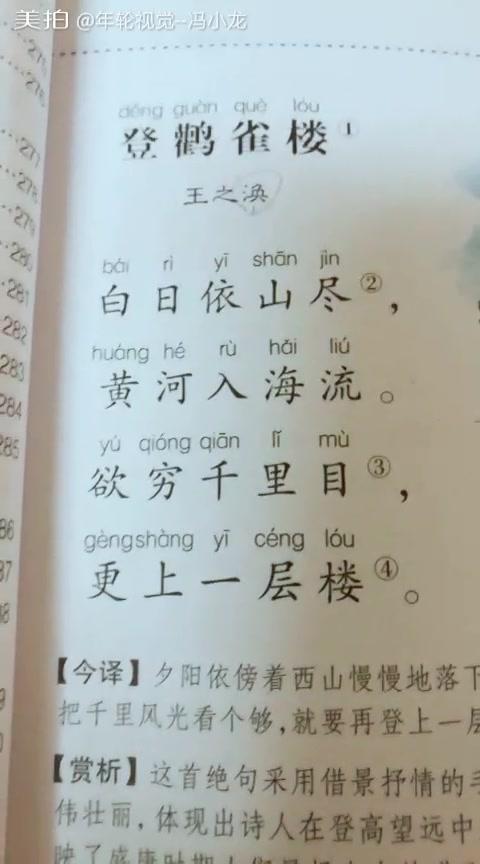 美拍 @年轮视觉--冯小龙
dēng guàn què lóu
登鹳雀楼①
王之涣
bái rì yī shān jìn
白日依山尽②，
huáng hé rù hǎi liú
黄河入海流。
yù qióng qiān lǐ mù
欲穷千里目③，
gèng shàng yī céng lóu
更上一层楼④。
【今译】夕阳依傍着西山慢慢地落下
把千里风光看个够，就要再登上一层
【赏析】这首绝句采用借景抒情的手
伟壮丽，体现出诗人在登高望远中
275
276
277
278
279
280
281
282
283
284
285